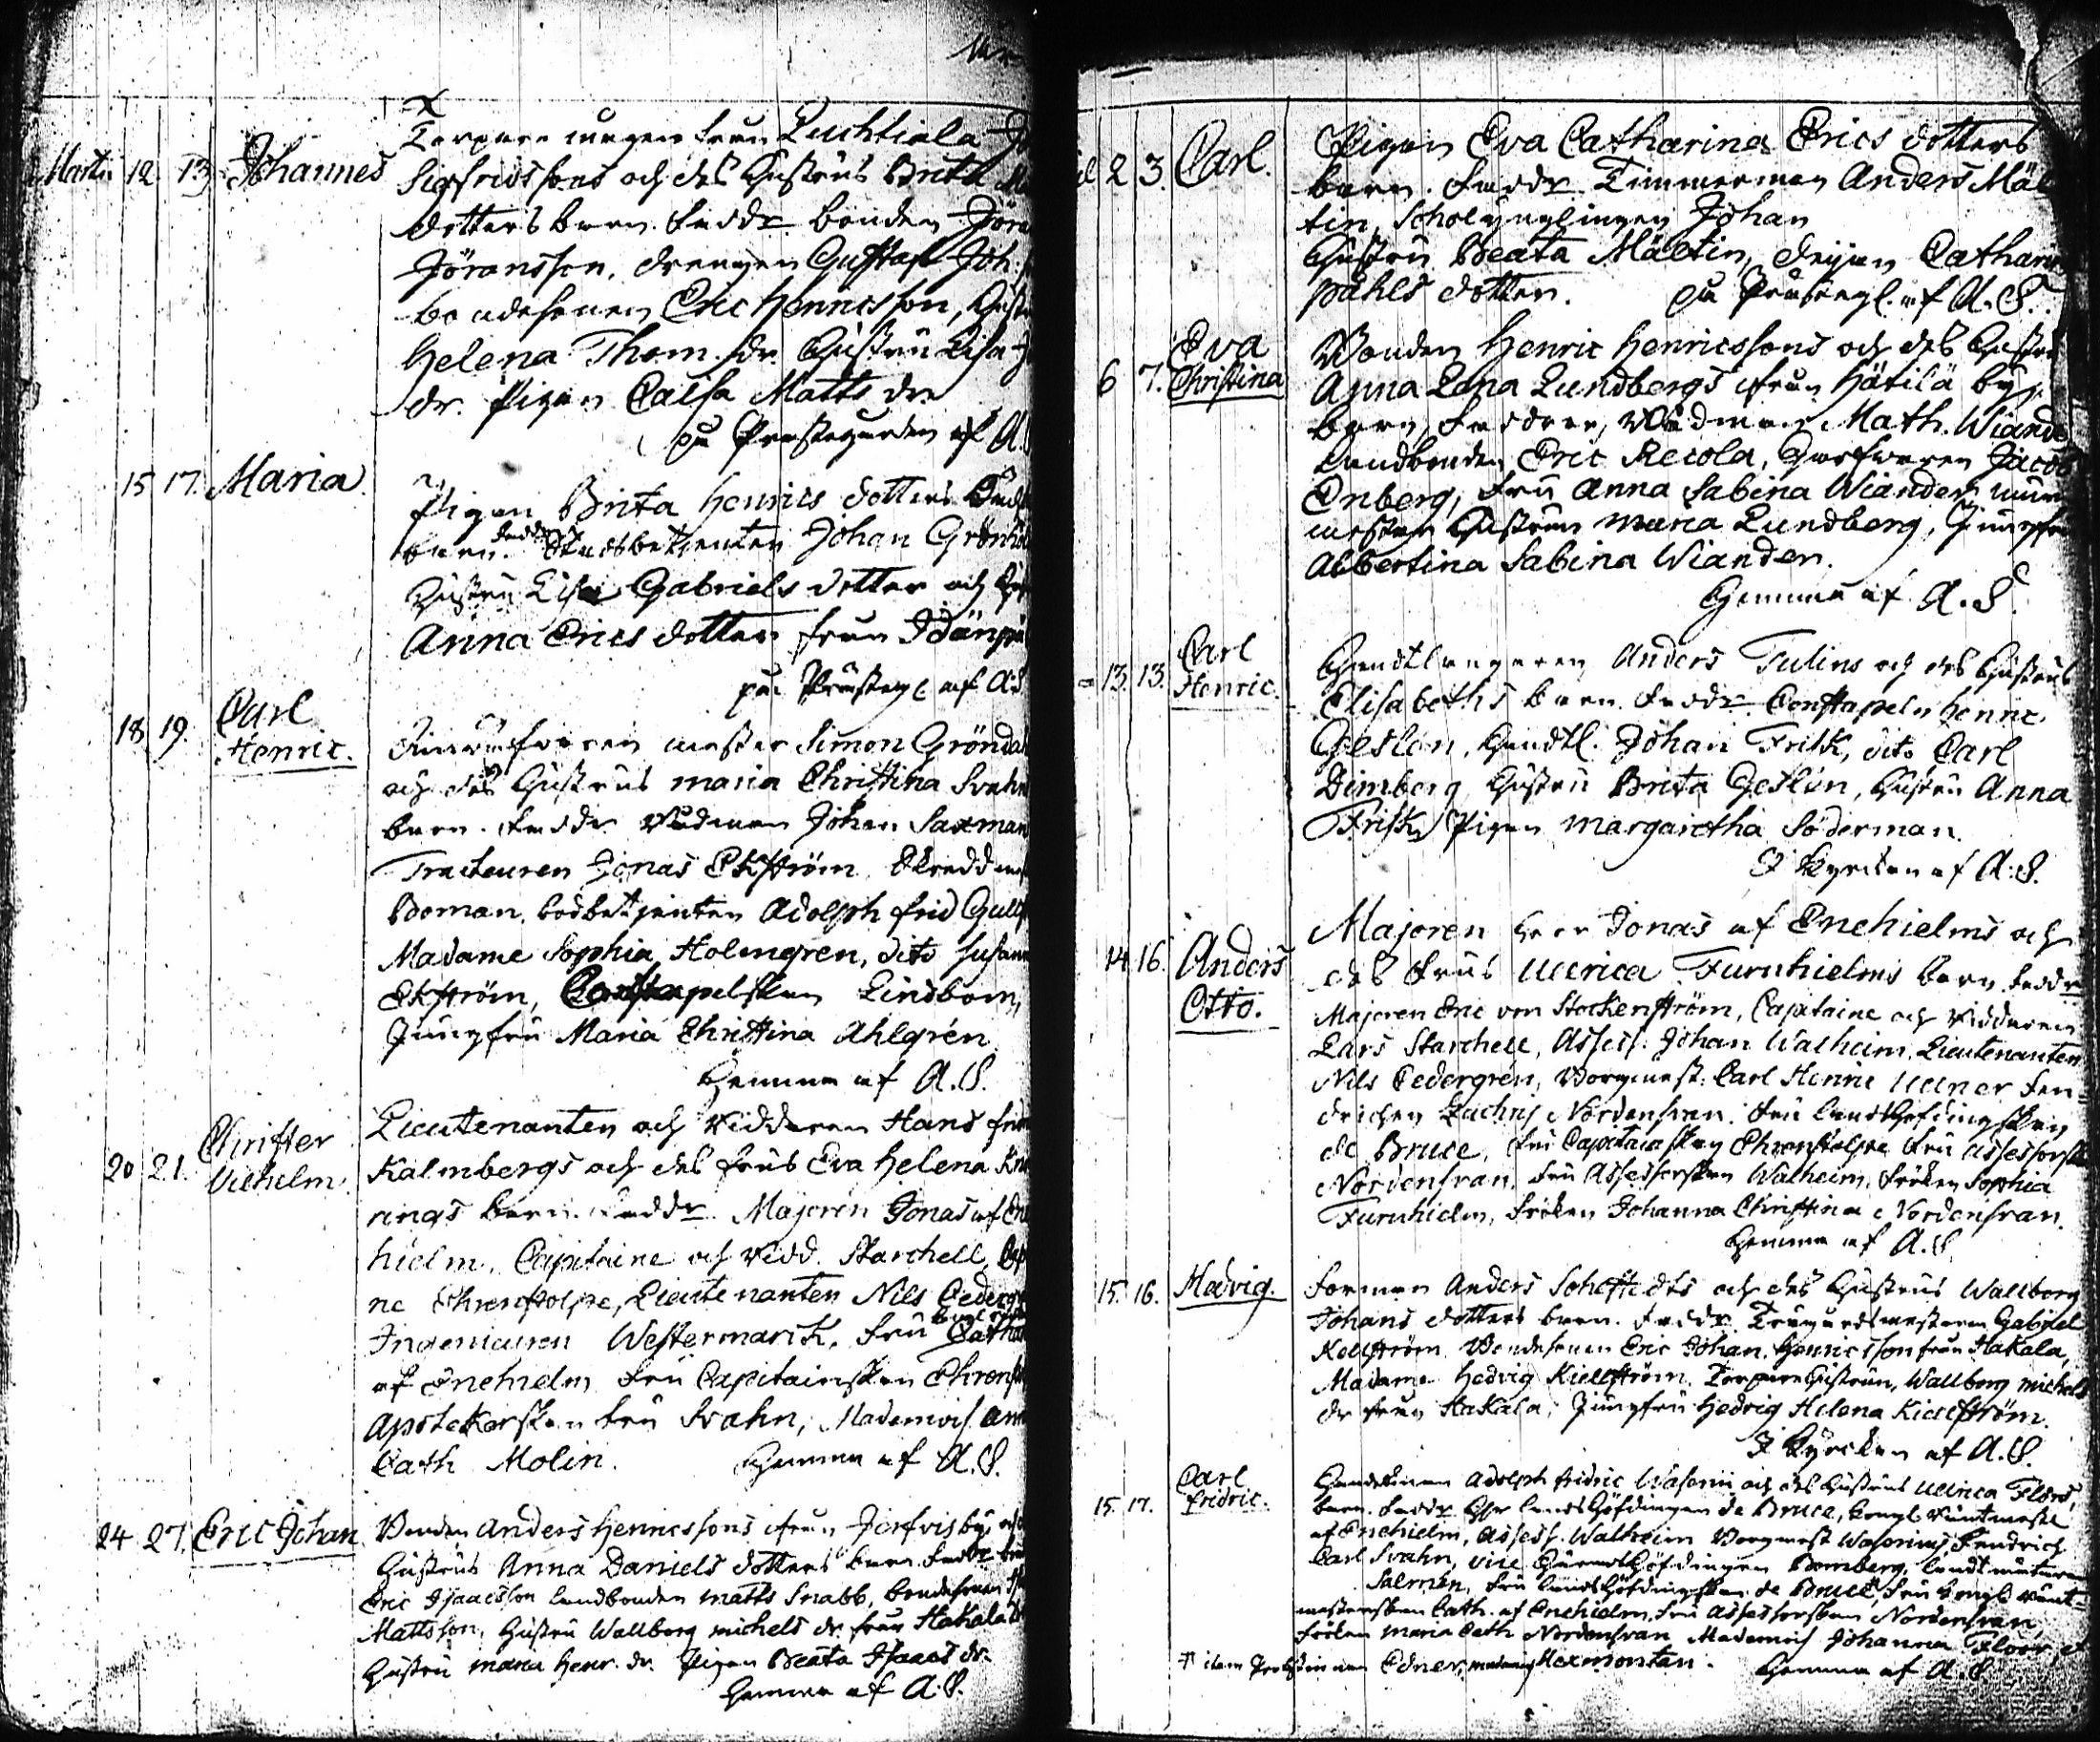 Martii 12 13 Johannes
Torpare ungen från Luchtiala
Sigfridssons och des Hustrus Brita
dotters barn. Faddr bonden Jöra
Jöransson, drengen Gustaf Joh.
bondesonen Eric Henricsson, Hustr
Helena Thom. dr. Hustru Lisa
dr. Pigan Caisa Matts dr
på Prestegården af A.
15 17. Maria
Pigan Brita Henrics dotters
barn. Faddr Stadsbetjenten Johan Grönhol
Hustru Lisa Gabriels dotter och
Anna Erics dotter från Idänpä
på Prästeg. af A.S
18 19. Carl Henric.
mester Simon Gröndal
och des Hustrus Maria Christina Svahn
barn. Faddr Rådman Johan Saxman
Tracteuren Jonas Ekström, Skreddmest
Boman, bodbetjenten Adolph Frid Gull
Madame Sophia Holmgren, dito Susann
Ekström, Constapelskan Lindbom,
Jungfru Maria Christina Ahlgrén
Hemma af A.S.
20 21. Christer Vilhelm.
Lieutenanten och Ridderen Hans Frid
Kalmbergs och des Frus Eva Helena Kno
rings barn. Faddr. Majoren Jonas af Ene
hielm, Capitaine och Ridd. Starchell, Cap
ne Ehrenstolpe, Lieutenanten Nils Cedergr
Ingenieuren Westermarck, Fru Catha
af Enehielm Fru Capitainskan Ehrenst
Apotekerskan Fru Svahn, Mademois. Ann
Cath Molin. Hemma af A.S.
24 27. Eric Johan
Bonden Anders Henricssons från Järfvis by och
Hustrus Anna Daniels dotters barn Faddr
Eric Isaacsson landbonden Matts Snabb, bondesonen
Mattsson, Hustru Wallborg Michels dr från Hakala
Hustru Maria Henr. dr. Pigan Beata Isaacs dr.
Hemma af A.S.
2 3. Carl.
Pigan Eva Catharina Erics dotters
barn. Faddr. Timmerman Anders Mäl
tin, Scholynglingen Johan
Hustru Beata Mältin, Pigan Cathari
Påhls dotter. på Prästeg. af A.S.
6 7. Eva Christina
Bonden Henric Henricssons och des Hustru
Anna Lena Lundbergs från Hätilä by
barn, Faddrar, Rådman Math. Wiande
Landbonden Eric Recola, Garfvaren Jacob
Enberg, Fru Anna Sabina Wiander, mur
mestar Hustrun Maria Lundberg, Jungfru
Albertina Sabina Wiander.
Hemma af A.S.
13. 13. Carl Henric.
Handtlangaren Anders Tulins och des Hustrus
Elisabeths barn. Faddr. Constapeln Henric
Geslön, Handtl. Johan Frisk, dito Carl
Dimberg Hustru Brita Geslön, Hustru Anna
Frisk, Pigan Margaretha Söderman.
I Kyrckan af A.S.
14 16. Anders Otto.
Majoren Herr Jonas af Enehielms och
des Frus Ulrica Furuhielms barn Faddr
Majoren Eric von Stockenström, Capitaine och Ridderen
Lars Starchell, Assess. Johan Walheim, Lieutenanten
Nils Cedergrén, Borgmest. Carl Henric Ulner Fen-
drichen Zachris Nordensvan. Fru Landshöfdingskan
de Bruce, Fru Capitainskan Ehrenstolpe Fru Assessorsk
Nordensvan, Fru Assessorskan Walheim, Fröken Sophia
Furuhielm, Fröken Johanna Christina Nordensvan.
Hemma af A.S.
15. 16. Hedvig.
Forman Anders Sohlstedts och des Hustrus Wallborg
Johans dotters barn. Faddr. Trägårdsmestaren Gabriel
Kellström Bondesonen Eric Johan Henricsson från Hakala,
Madame Hedvig Kiellström Torpare Hustrun, Wallborg Michels
dr från Hakala, Jungfru Hedvig Helena Kiellström.
I Kyrckan af A.S.
15. 17. Carl Fridric.
Handelsman Adolph Fridric Wasenii och des Hustrus Ulrica Floors
barn. Faddr Herr Landshöfdingen de Bruce, Kongl Räntmestar
af Enehielm, Assess. Walheim Borgmest Wasenius Fendrich
Carl Svahn, vice Häradshöfdingen Bomberg, Landtmätaren
Salmén, Fru Landshöfdingskan de Bruce, Fru Kongl Ränt-
mesterskan Cath. af Enehielm, Fru Assessorskan Nordensvan
Fröken Maria Cath Nordensvan Mademois Johanna Floor,
Edner, Mexmontan. Hemma af A.S.